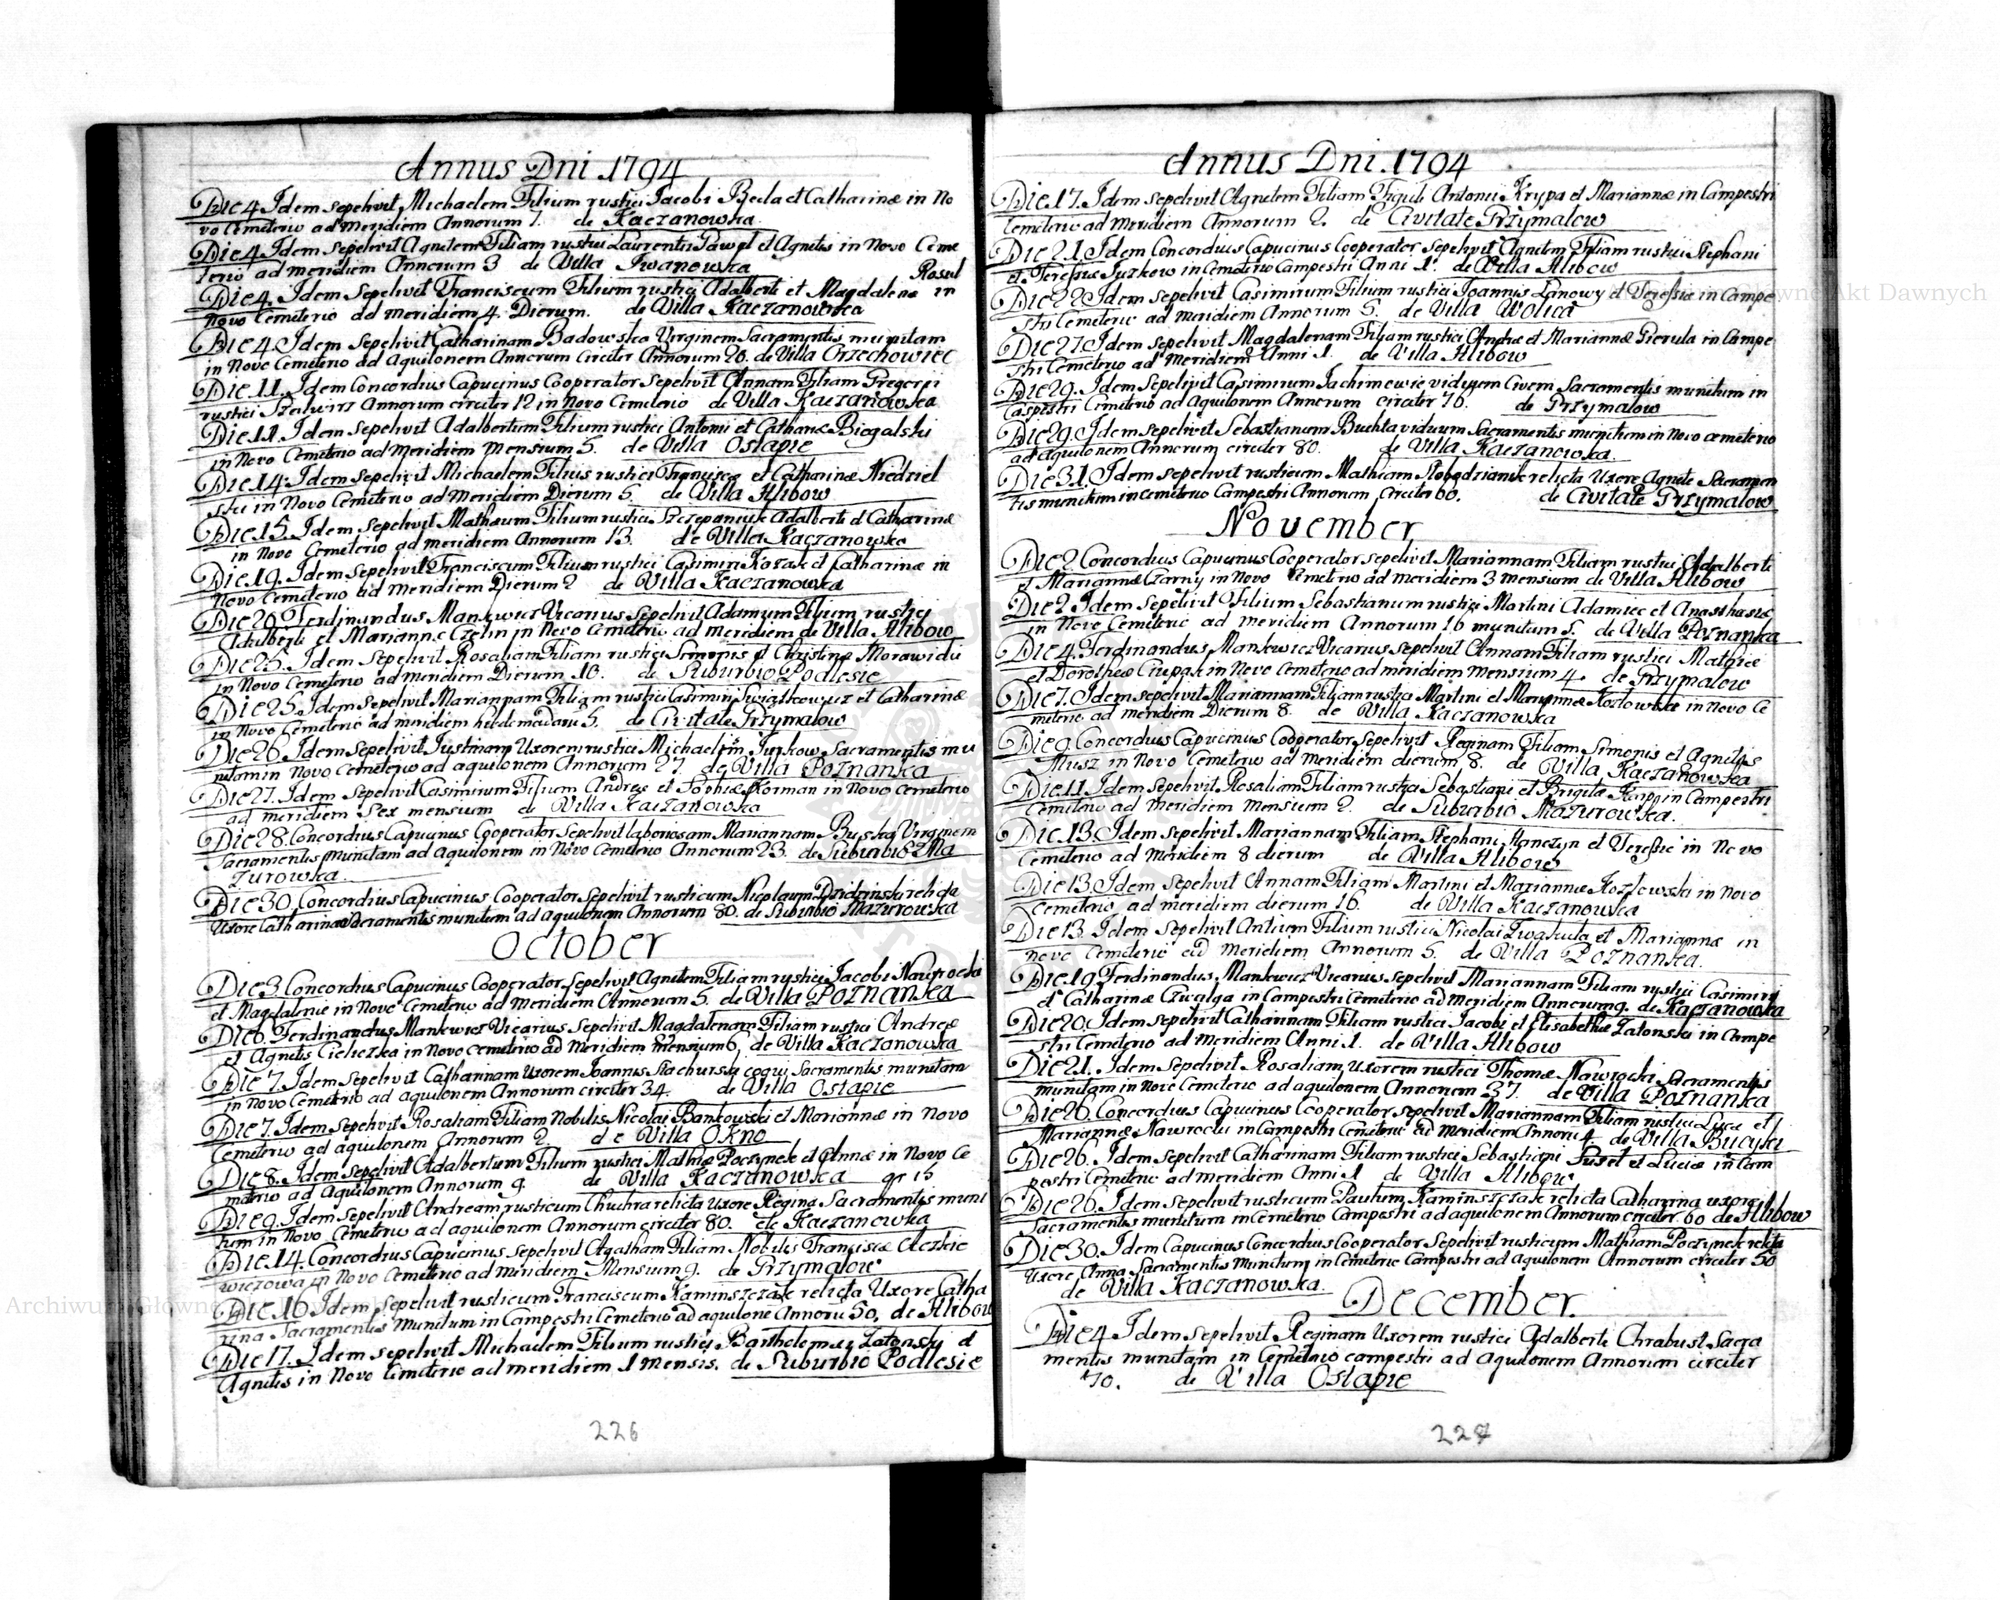 Annus Dni 1794
Die 4 Idem sepelivit Michaelem Filium rustici Jacobi Beda et Catharinæ in No
vo Cemeterio ad meridiem Annorum 7. de Kaczanowka
Die 4 Idem sepelivit Agnetem Filiam rustici Laurentii Pawel et Agnetis in Novo Ceme
terio ad meridiem Annorum 3 de Villa Iwanowka
Rosul
Die 4. Idem Sepelivit Franciscum Filium rustici Adalberti et Magdalenæ in
Novo Cemeterio ad meridiem 4. Dierum. de Villa Kaczanowka
Die 4. Idem Sepelivit Catharinam Badowska Virginem Sacramentis munitam
in Novo Cemeterio ad Aquilonem Annorum Circiter Annorum 20. de Villa Orzechowiec
Die 11. Idem Concordius Capucinus Cooperator Sepelivit Annam Filiam Gregorii
rustici Annorum circiter 12 in Novo Cemeterio de Villa Kaczanowka
Die 11. Idem Sepelivit Adalbertum Filium rustici Antonii et Catharinæ Biegalski
in Novo Cemeterio ad Meridiem Mensium 5. de Villa Ostapie
Die 14 Idem sepelivit Michaelem Filius rustici Francisci et Catharinæ Niedziel
ski in Novo Cemeterio ad Meridiem Dierum 6. de Villa Hlibow
Die 15. Idem Sepelivit Mathæum Filium rustici Szczepaniuk Adalberti et Catharinæ
in Novo Cemeterio ad meridiem Annorum 13. de Villa Kaczanowka
Die 19. Idem Sepelivit Franciscum Filium rustici Casimiri Kozak et Catharinæ in
Novo Cemeterio ad meridiem Dierum 2 de Villa Kaczanowka
Die 20. Ferdinandus Mankwicz Vicarius Sepelivit Adamum Filium rustici
Adalberti et Mariannæ Czelin in Novo Cemeterio ad meridiem de Villa Hlibow
Die 25. Idem Sepelivit Rosaliam Filiam rustici Simonis et Christinæ Morawicki
in Novo Cemeterio ad meridiem Dierum 10. de Suburbio Podlesie
Die 25. Idem Sepelivit Mariannam Filiam rustici Casimiri Swiątkowicz et Catharinæ
in Novo Cemeterio ad meridiem hebdomadum 5. de Civitate Grzymalow
Die 26. Idem Sepelivit Justinam Uxorem rustici Michaelis Jurkow Sacramentis mu
nitam in Novo Cemeterio ad aquilonem Annorum 27. de Villa Poznanka
Die 27. Idem Sepelivit Casimirum Filium Andreæ et Sophiæ Korman in Novo Cemeterio
ad meridiem Sex mensium de Villa Kaczanowka
Die 28. Concordius Capucinus Cooperator Sepelivit laboriosam Mariannam Buska Virginem
Sacramentis Munitam ad aquilonem in Novo Cemeterio Annorum 23. de Suburbio Ma
zurowka
Die 30. Concordius Capucinus Cooperator Sepelivit rusticum Nicolaum Dzidzinski relicta
Uxore Catharina Sacramentis munitum ad aquilonem Annorum 80. de Suburbio Mazurowka
October
Die 3. Concordius Capucinus Cooperator Sepelivit Agnetem Filiam rustici Jacobi Nawrocki
et Magdalenæ in Novo Cemeterio ad Meridiem Annorum 5. de Villa Poznanka
Die 6. Ferdinandus Mankwicz Vicarius Sepelivit Magdalenam Filiam rustici Andreæ
et Agnetis Cieluszka in Novo Cemeterio ad Meridiem Mensium 6. de Villa Kaczanowka
Die 7. Idem Sepelivit Catharinam Uxorem Joannis Stachurski coqui Sacramentis munitam
in Novo Cemeterio ad aquilonem Annorum circiter 34. de Villa Ostapie
Die 7. Idem Sepelivit Rosaliam Filiam Nobilis Nicolai Bankowski et Mariannæ in Novo
Cemeterio ad aquilonem Annorum 2. de Villa Okno
Die 8. Idem sepelivit Adalbertum Filium rustici Mathiæ Poczynek et Annæ in Novo Ce
meterio ad Aquilonem Annorum 9. de Villa Kaczanowka gr 15
Die 9. Idem Sepelivit Andream rusticum Chuchra relicta Uxore Regina Sacramentis muni
tum in Novo Cemeterio ad aquilonem Annorum circiter 80. de Kaczanowka
Die 14. Concordius Capucinus Sepelivit Agatham Filiam Nobilis Francisci Aleskie
wiczowa in Novo Cemeterio ad meridiem Mensium 9. de Grzymalow
Die 16. Idem Sepelivit rusticum Franciscum Kaminszczak relicta Uxore Catha
rina Sacramentis Munitum in Campestri Cemeterio ad aquilone Annoru 50. de Hlibow
Die 17. Idem sepelivit Michaelem Filium rustici Barthelemaei Zatonsky et
Agnetis in Novo Cemeterio ad meridiem 1 mensis. de Suburbio Podlesie
226
Annus Dni 1794
Die 17. Idem sepelivit Agnetem Filiam Figuli Antonii Krypa et Mariannæ in Campestri
Cemeterio ad Meridiem Annorum 2. de Civitate Grzymalow
Die 21. Idem Concordius Capucinus Cooperator Sepelivit Agnetem Filiam rustici Stephani
et Teresiæ Jurkow in Cemeterio Campestri Anni 1. de Villa Hlibow
Die 22 Idem Sepelivit Casimirum Filium rustici Joannis Lanowy et Teressiæ in Campe
stri Cemeterio ad Meridiem Annorum 5. de Villa Wolica
Die 27. Idem Sepelivit Magdalenam Filiam rustici Andreæ et Mariannæ Pierula in Campe
stri Cemeterio ad Meridiem Anni 1. de Villa Hlibow
Die 29. Idem Sepelivit Casimirum Jachimowic viduum Civem Sacramentis munitum in
Caspestri Cemeterio ad Aquilonem Annorum circiter 76. de Grzymalow
Die 29. Idem sepelivit Sebastianum Buchta viduum Sacramentis munitum in Novo cemeterio
ad aquilonem Annorum circiter 80. de Villa Kaczanowka.
Die 31. Idem sepelivit rusticum Mathiam relicta Uxore Agnete Sacramen
tis munitum in cemeterio Campestri Annorum Circiter 60. de Civitate Grzymalow
November
Die 2. Concordius Capucinus Cooperator sepelivit Mariannam Filiam rustici Adalberti
et Mariannæ Czarny in Novo Cemeterio ad meridiem 3 mensium de Villa Hlibow
Die 2. Idem Sepelivit Filium Sebastianum rustici Martini Adamiec et Anasthasiæ
in Novo Cemeterio ad meridiem Annorum 16 munitum S. de Villa Poznanka
Die 4. Ferdinandus Mankwicz Vicarius Sepelivit Annam Filiam rustici Mathiæ
et Dorotheæ Ciupak in Novo Cemeterio ad meridiem mensium 4. de Grzymalow
Die 7. Idem sepelivit Mariannam Filiam rustici Martini et Mariannæ Kozlowska in Novo Ce
meterio ad meridiem Dierum 8. de Villa Kaczanowka
Die 9. Concordius Capucinus Cooperator Sepelivit Reginam Filiam Simonis et Agnetis
Musz in Novo Cemeterio ad meridiem dierum 8. de Villa Kaczanowka
Die 11 Idem Sepelivit Rosaliam Filiam rustici Sebastiani et Brigitæ Karp in Campestri
Cemeterio ad Meridiem Mensium 2. de Suburbio Mazurowka.
Die 13. Idem Sepelivit Mariannam Filiam Stephani Honczyn et Teressiæ in Novo
Cemeterio ad Meridiem 8 dierum de Villa Hlibow
Die 13. Idem Sepelivit Annam Filiam Martini et Mariannæ Kozlowski in Novo
Cemeterio ad meridiem dierum 16. de Villa Kaczanowka
Die 13 Idem Sepelivit Antium Filium rustici Nicolai Iwahuta et Mariannæ in
Novo Cemeterio ad Meridiem Annorum 5. de Villa Poznanka.
Die 19 Ferdinandus Mankwicz Vicarius Sepelivit Mariannam Filiam rustici Casimiri
et Catharinæ Czwalga in Campestri Cemeterio ad Meridiem Annorum 9. de Kaczanowka
Die 20. Idem Sepelivit Catharinam Filiam rustici Jacobi et Elisabethæ Zatonski in Campe
stri Cemeterio ad meridiem Anni 1. de Villa Hlibow
Die 21. Idem Sepelivit Rosaliam Uxorem rustici Thomæ Nawrocki Sacramentis
munitam in Novo Cemeterio ad aquilonem Annorum 37. de Villa Poznanka
Die 26. Concordius Capucinus Cooperator sepelivit Mariannam Filiam rustici Lucæ et
Mariannæ Nawrocki in Campestri Cemeterio ad Meridiem Annoru 4. de Villa Bucyki
Die 26. Idem Sepelivit Catharinam Filiam rustici Sebastiani Pusel et Luciæ in Cam
pestri Cemeterio ad meridiem Anni 1 de Villa Hlibow
Die 26. Idem Sepelivit rusticum Paulum Kaminszczak relicta Catharina uxore
Sacramentis munitum in Cemeterio Campestri ad aquilonem Annorum circiter 60 de Hlibow
Die 30. Idem Capucinus Concordius Cooperator Sepelivit rusticum Mathiam Poczynek relicta
Uxore Anna Sacramentis Munitum in Cemeterio Campestri ad Aquilonem Annorum circiter 50
de Villa Kaczanowka.
December
Die 4 Idem Sepelivit Reginam Uxorem rustici Adalberti Chrabust Sacra
mentis munitam in Cemeterio campestri ad Aquilonem Annorum circiter
70. de Villa Ostapie
227
Archiwum Główne Akt Dawnych